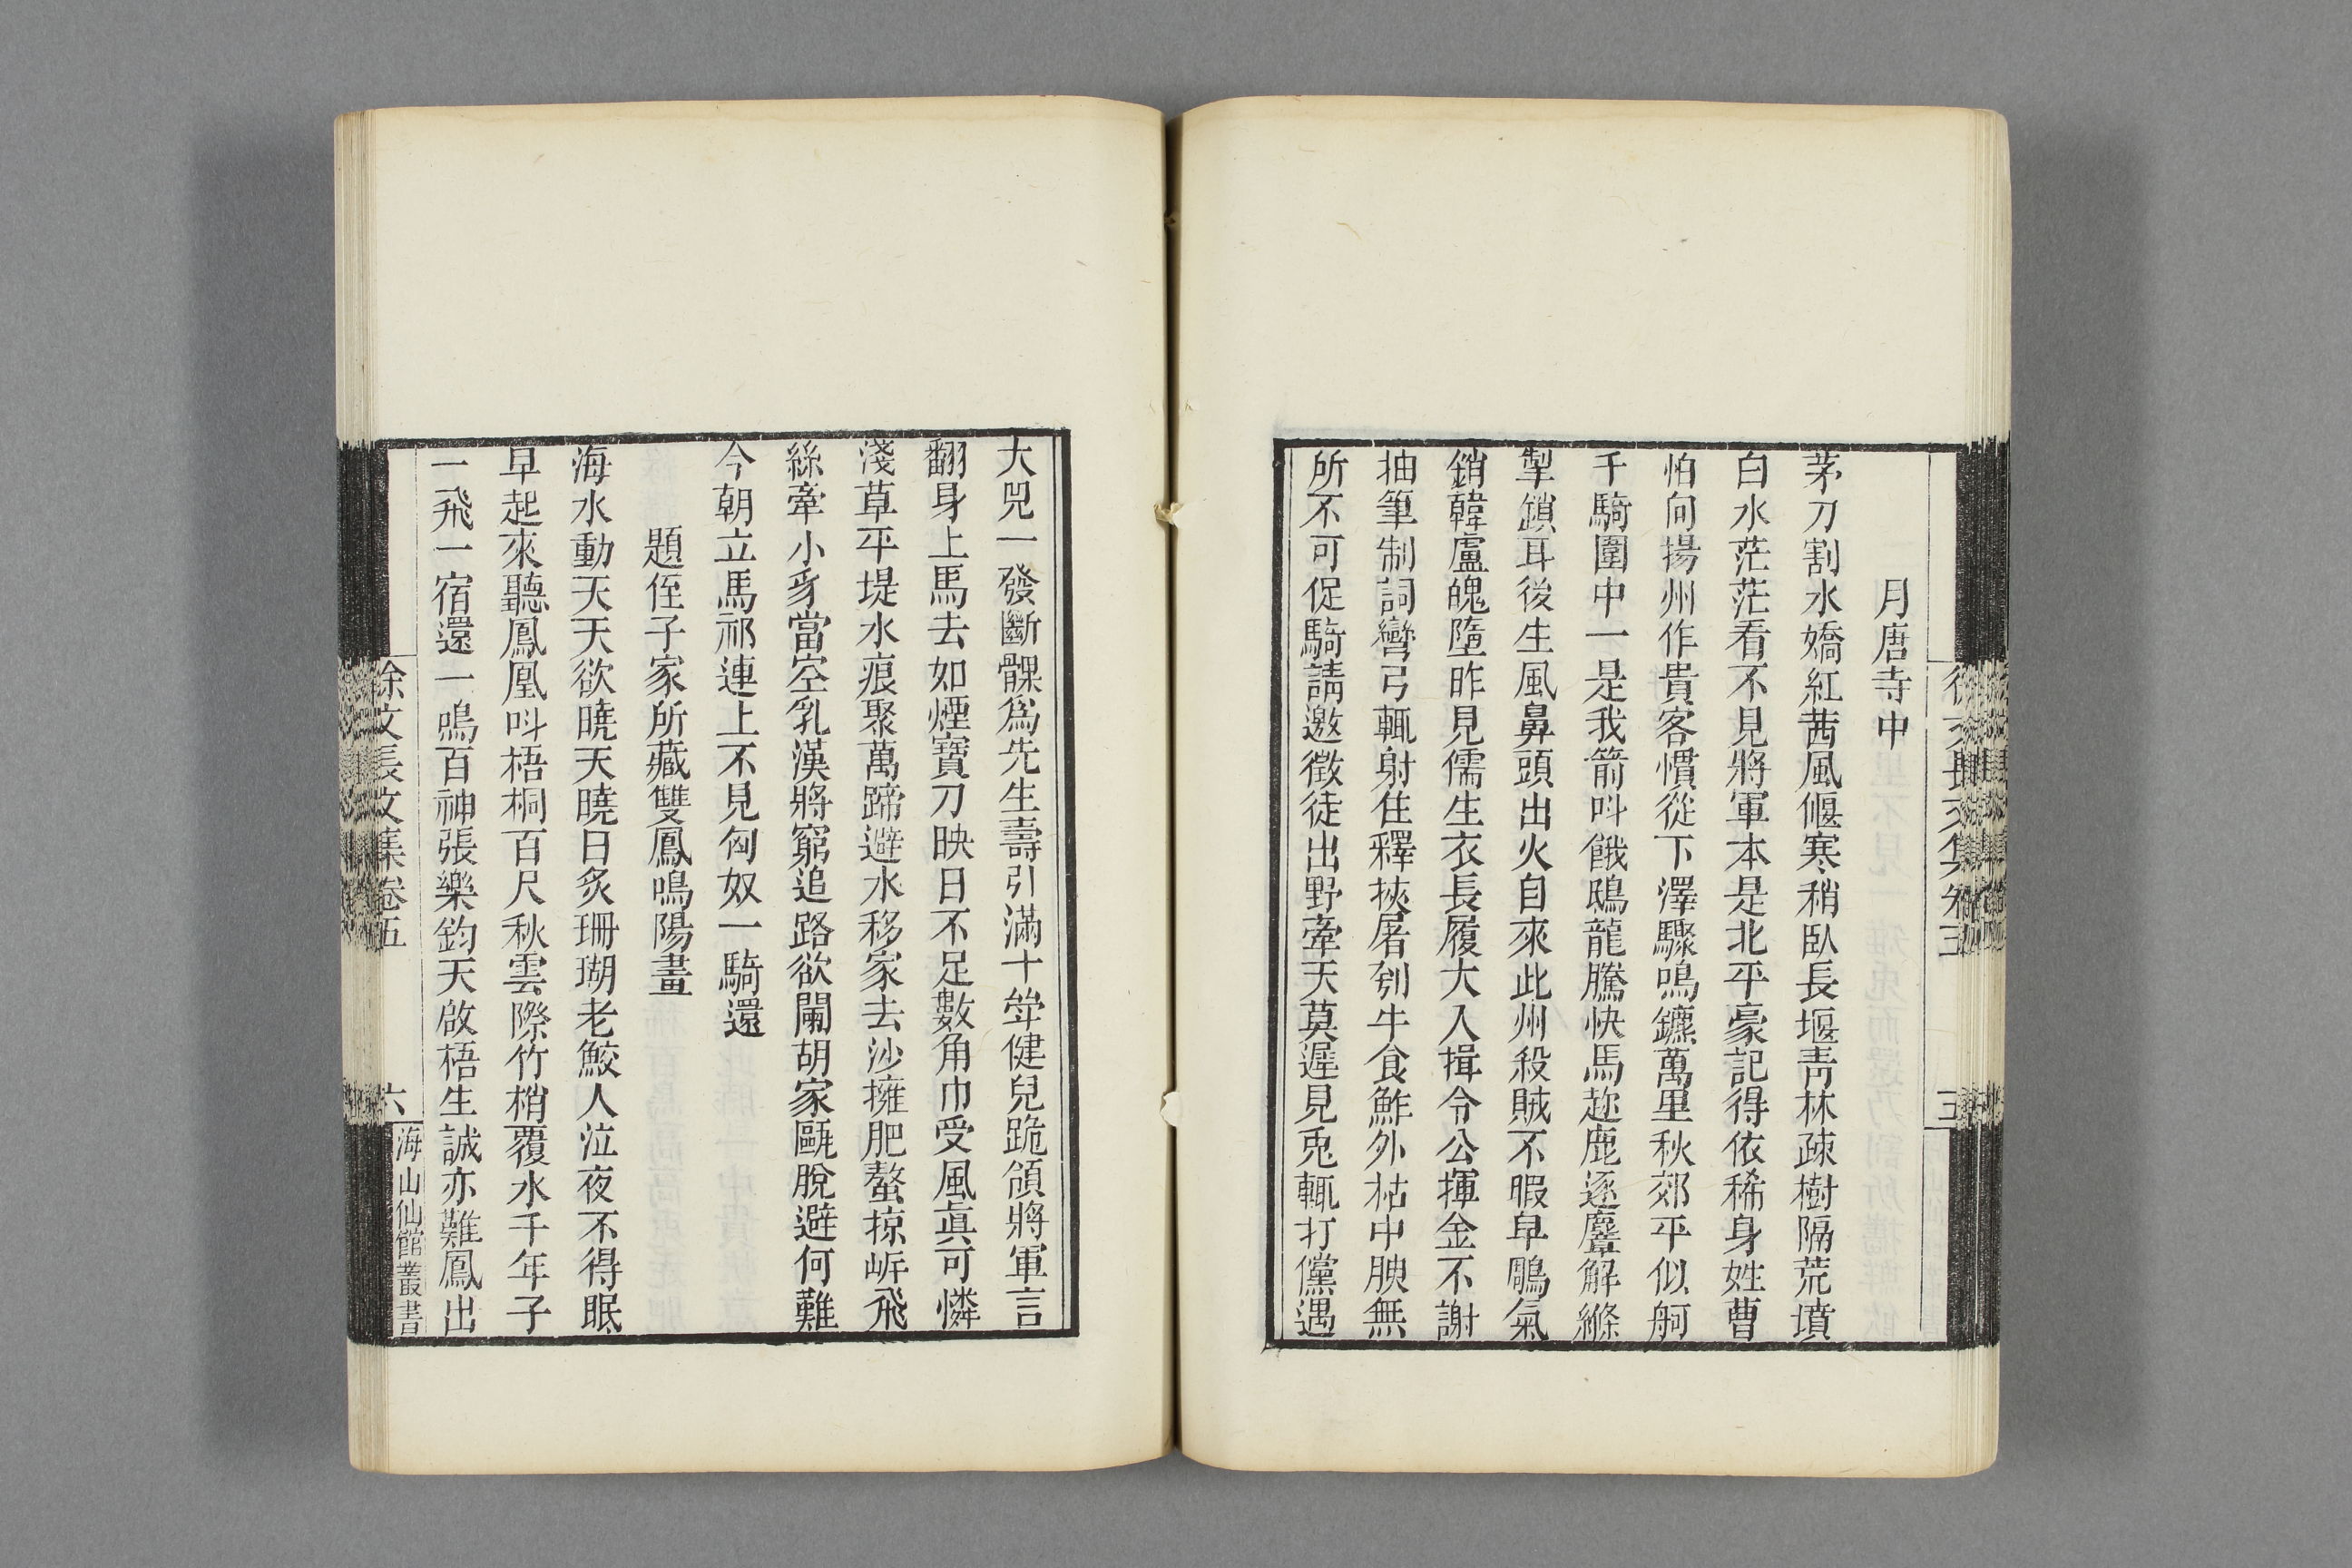 月唐寺中
茅刀割水嬌紅茜風偃寒稍臥長堰靑林疎樹隔荒墳
白水茫茫看不見將軍本是北平豪記得依稀身姓曹
怕向揚州作貴客慣從下澤驟鳴鑣萬里秋郊平似舸
千騎圍中一是我箭呌餓鴟龍騰快馬趂鹿逐麞解縧
掣鎖耳後生風鼻頭出火自來此州殺賊不暇早鵰氣
銷韓盧魄墮昨見儒生衣長履大入揖令公揮金不謝
抽筆制詞彎弓輒射隹釋挾屠刳牛食鮓外枯中腴無
所不可促騎請邀徵徒出野牽天莫遲見兎輒打儻遇
徐文長文集卷五
五
大兕一發斷髁爲先生壽引滿十斝健兒跪頒將軍言
翻身上馬去如煙寶刀映日不足數角巾受風眞可憐
淺草平堤水痕聚萬蹄避水移家去沙擁肥螯掠岍飛
絲牽小豸當空乳漢將窮追路欲闌胡家甌脫避何難
今朝立馬祁連上不見匈奴一騎還
題侄子家所藏雙鳳鳴陽畫
海水動天天欲曉天曉日炙珊瑚老鮫人泣夜不得眠
早起來聽鳳凰呌梧桐百尺秋雲際竹梢覆水千年子
一飛一宿還一鳴百神張樂鈞天啟梧生誠亦難鳳出
徐文長文集卷五
六
海山仙館叢書